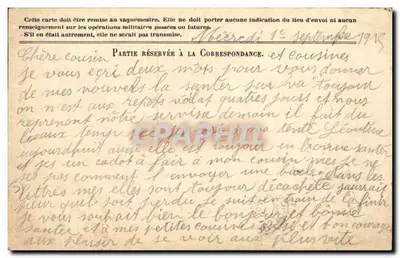 Cette carte doit être remise au vaguemestre. Elle ne doit porter aucune indication du lieu d'envoi ni aucun
renseignement sur les opérations militaires passées ou futures.
S'il en était autrement, elle ne serait pas transmise.
Mécredi 1e septembre 1915
PARTIE RÉSERVÉE A LA CORRESPONDANCE.
Chère cousin et cousines
je vous ecri deux mots pour vous donner
de mes nouvels la santer sur va toujour
on n'est aux repots volat quatres jours et nous
reprenont notre servise demain il fait du
beaux temps tente Léontine
aujourdhui aussi elle est toujour en bonne santer
et jes un cadot a fair a mon cousin mes je ne
ses pas comment l'envoyer une dans les
lettres mes elles sont toujour décacheté jaurrait
peur quels soit perdu je suit en train de la finir
je vous souhait bien le bonjour et bonne
santer et a mes petites cousines aussi et bon courage
aux plaisir de se voir aux plus vite
CPAPHIL